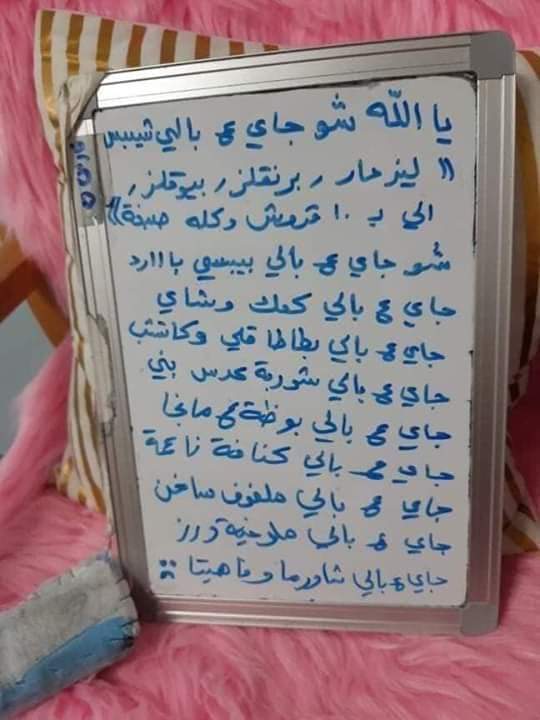 يا الله شو جاي ع بالي شيبس
"ليز حار، برنقلز، بيوقلز،
الي ب ١٠ قروش وكله صبغة"
شو جاي ع بالي بيبسي باارد
جاي ع بالي كعك وشاي
جاي ع بالي بطاطا قلي وكاتشب
جاي ع بالي شوربة عدس بني
جاي ع بالي بوظة ع مانجا
جاي ع بالي كنافة ناعمة
جاي ع بالي ملفوف ساخن
جاي ع بالي ملوخية ورز
جاي ع بالي شاورما وفاهيتا